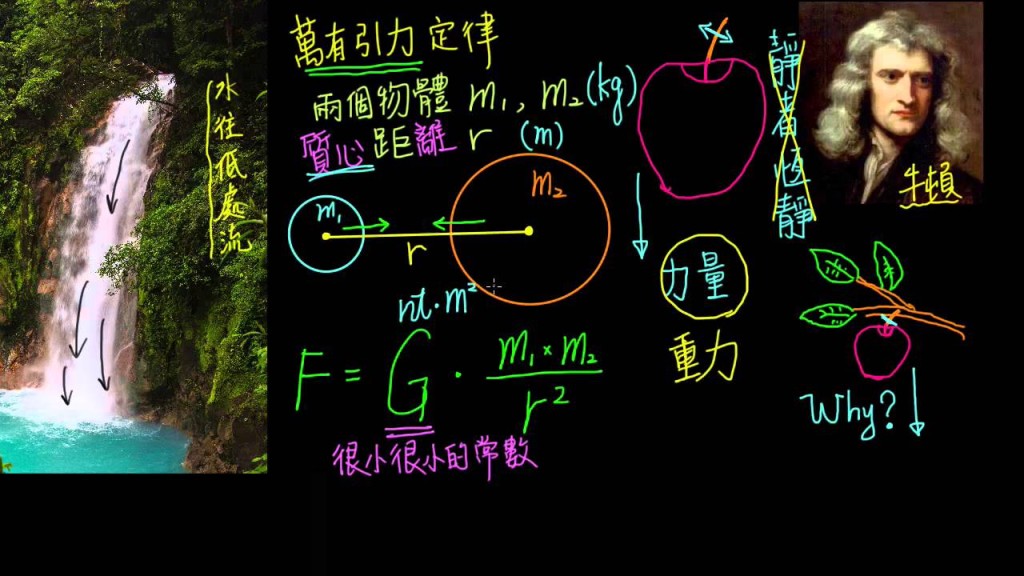 水往低處流
萬有引力定律
兩個物體 m₁, m₂ (kg)
質心距離 r (m)
m₁
m₂
r
nt·m²
F = G · m₁ × m₂ / r²
很小很小的常數
靜者恆靜
力量
重力
牛頓
Why?